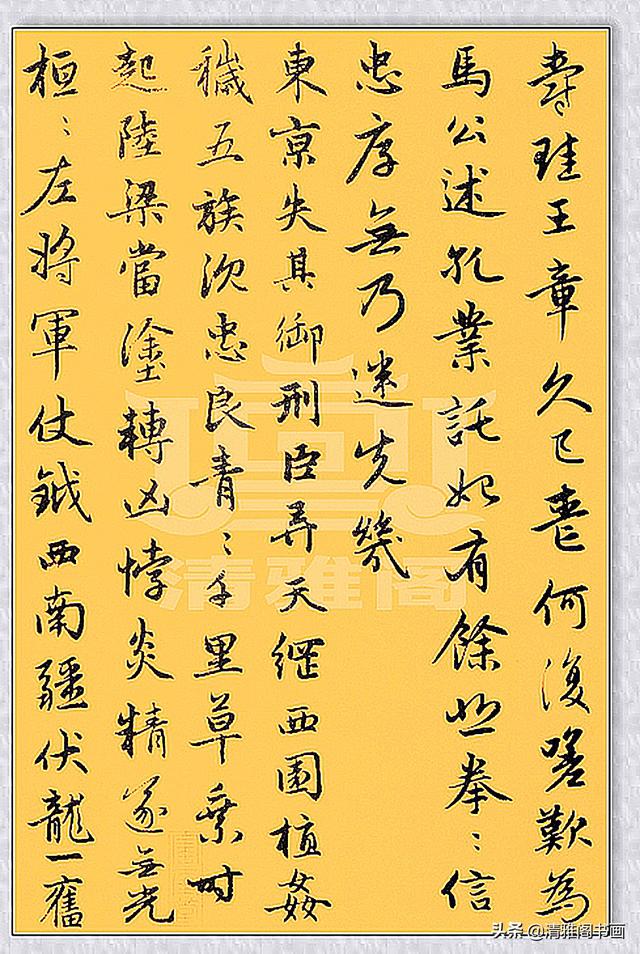 爵珪王章久已喪何復嗟歎為
馬公述孔業託始有餘悲拳〻信
忠厚無乃迷先幾
東京失其御刑臣弄天綱西園植姦
穢五族沉忠良青〻千里草乘時
起陸梁當塗轉凶悖炎精遂無光
桓〻左將軍仗鉞西南疆伏龍一奮
清雅阁
头条 @清雅阁书画